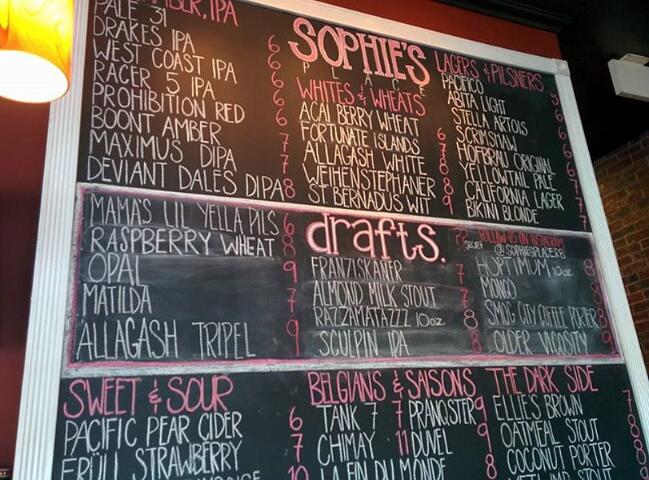 AMBER, IPA
PALE 31
DRAKES IPA 6
WEST COAST IPA 6
RACER 5 IPA 6
PROHIBITION RED 6
BOONT AMBER 7
MAXIMUS DIPA 7
DEVIANT DALES DIPA 8
SOPHIE'S
PLACE
WHITES & WHEATS
ACAI BERRY WHEAT
FORTUNATE ISLANDS 6
ALLAGASH WHITE 7
WEIHENSTEPHANER 8
ST. BERNADUS WIT 9
LAGERS & PILSNERS
PACIFICO 5
ABITA LIGHT
STELLA ARTOIS 6
SCRIMSHAW 6
HOFBRAU ORIGINAL
YELLOWTAIL PALE
CALIFORNIA LAGER
BIKINI BLONDE 7
MAMA'S LIL YELLA PILS 6
RASPBERRY WHEAT 8
OPAL 9
MATILDA 7
ALLAGASH TRIPEL 9
drafts.
FRANZISKANER 7
ALMOND MILK STOUT 7
RAZZAMATAZZZ 10oz. 8
SCULPIN IPA 8
FOLLOW US ON INSTAGRAM
@SOPHIESPLACERB
HOPTIMUM 10oz 8
MONGO 8
SMOG CITY COFFEE PORTER 8
OLDER VICOSITY 9
SWEET & SOUR
PACIFIC PEAR CIDER 6
FRÜLI STRAWBERRY 7
10
BELGIANS & SAISONS
TANK 7 7 PRANQSTER 9
CHIMAY 11 DUVEL 9
LA FIN DU MONDE 9
THE DARK SIDE
ELLIE'S BROWN 7
OATMEAL STOUT 8
COCONUT PORTER 8
VELVET IMP. STOUT 8